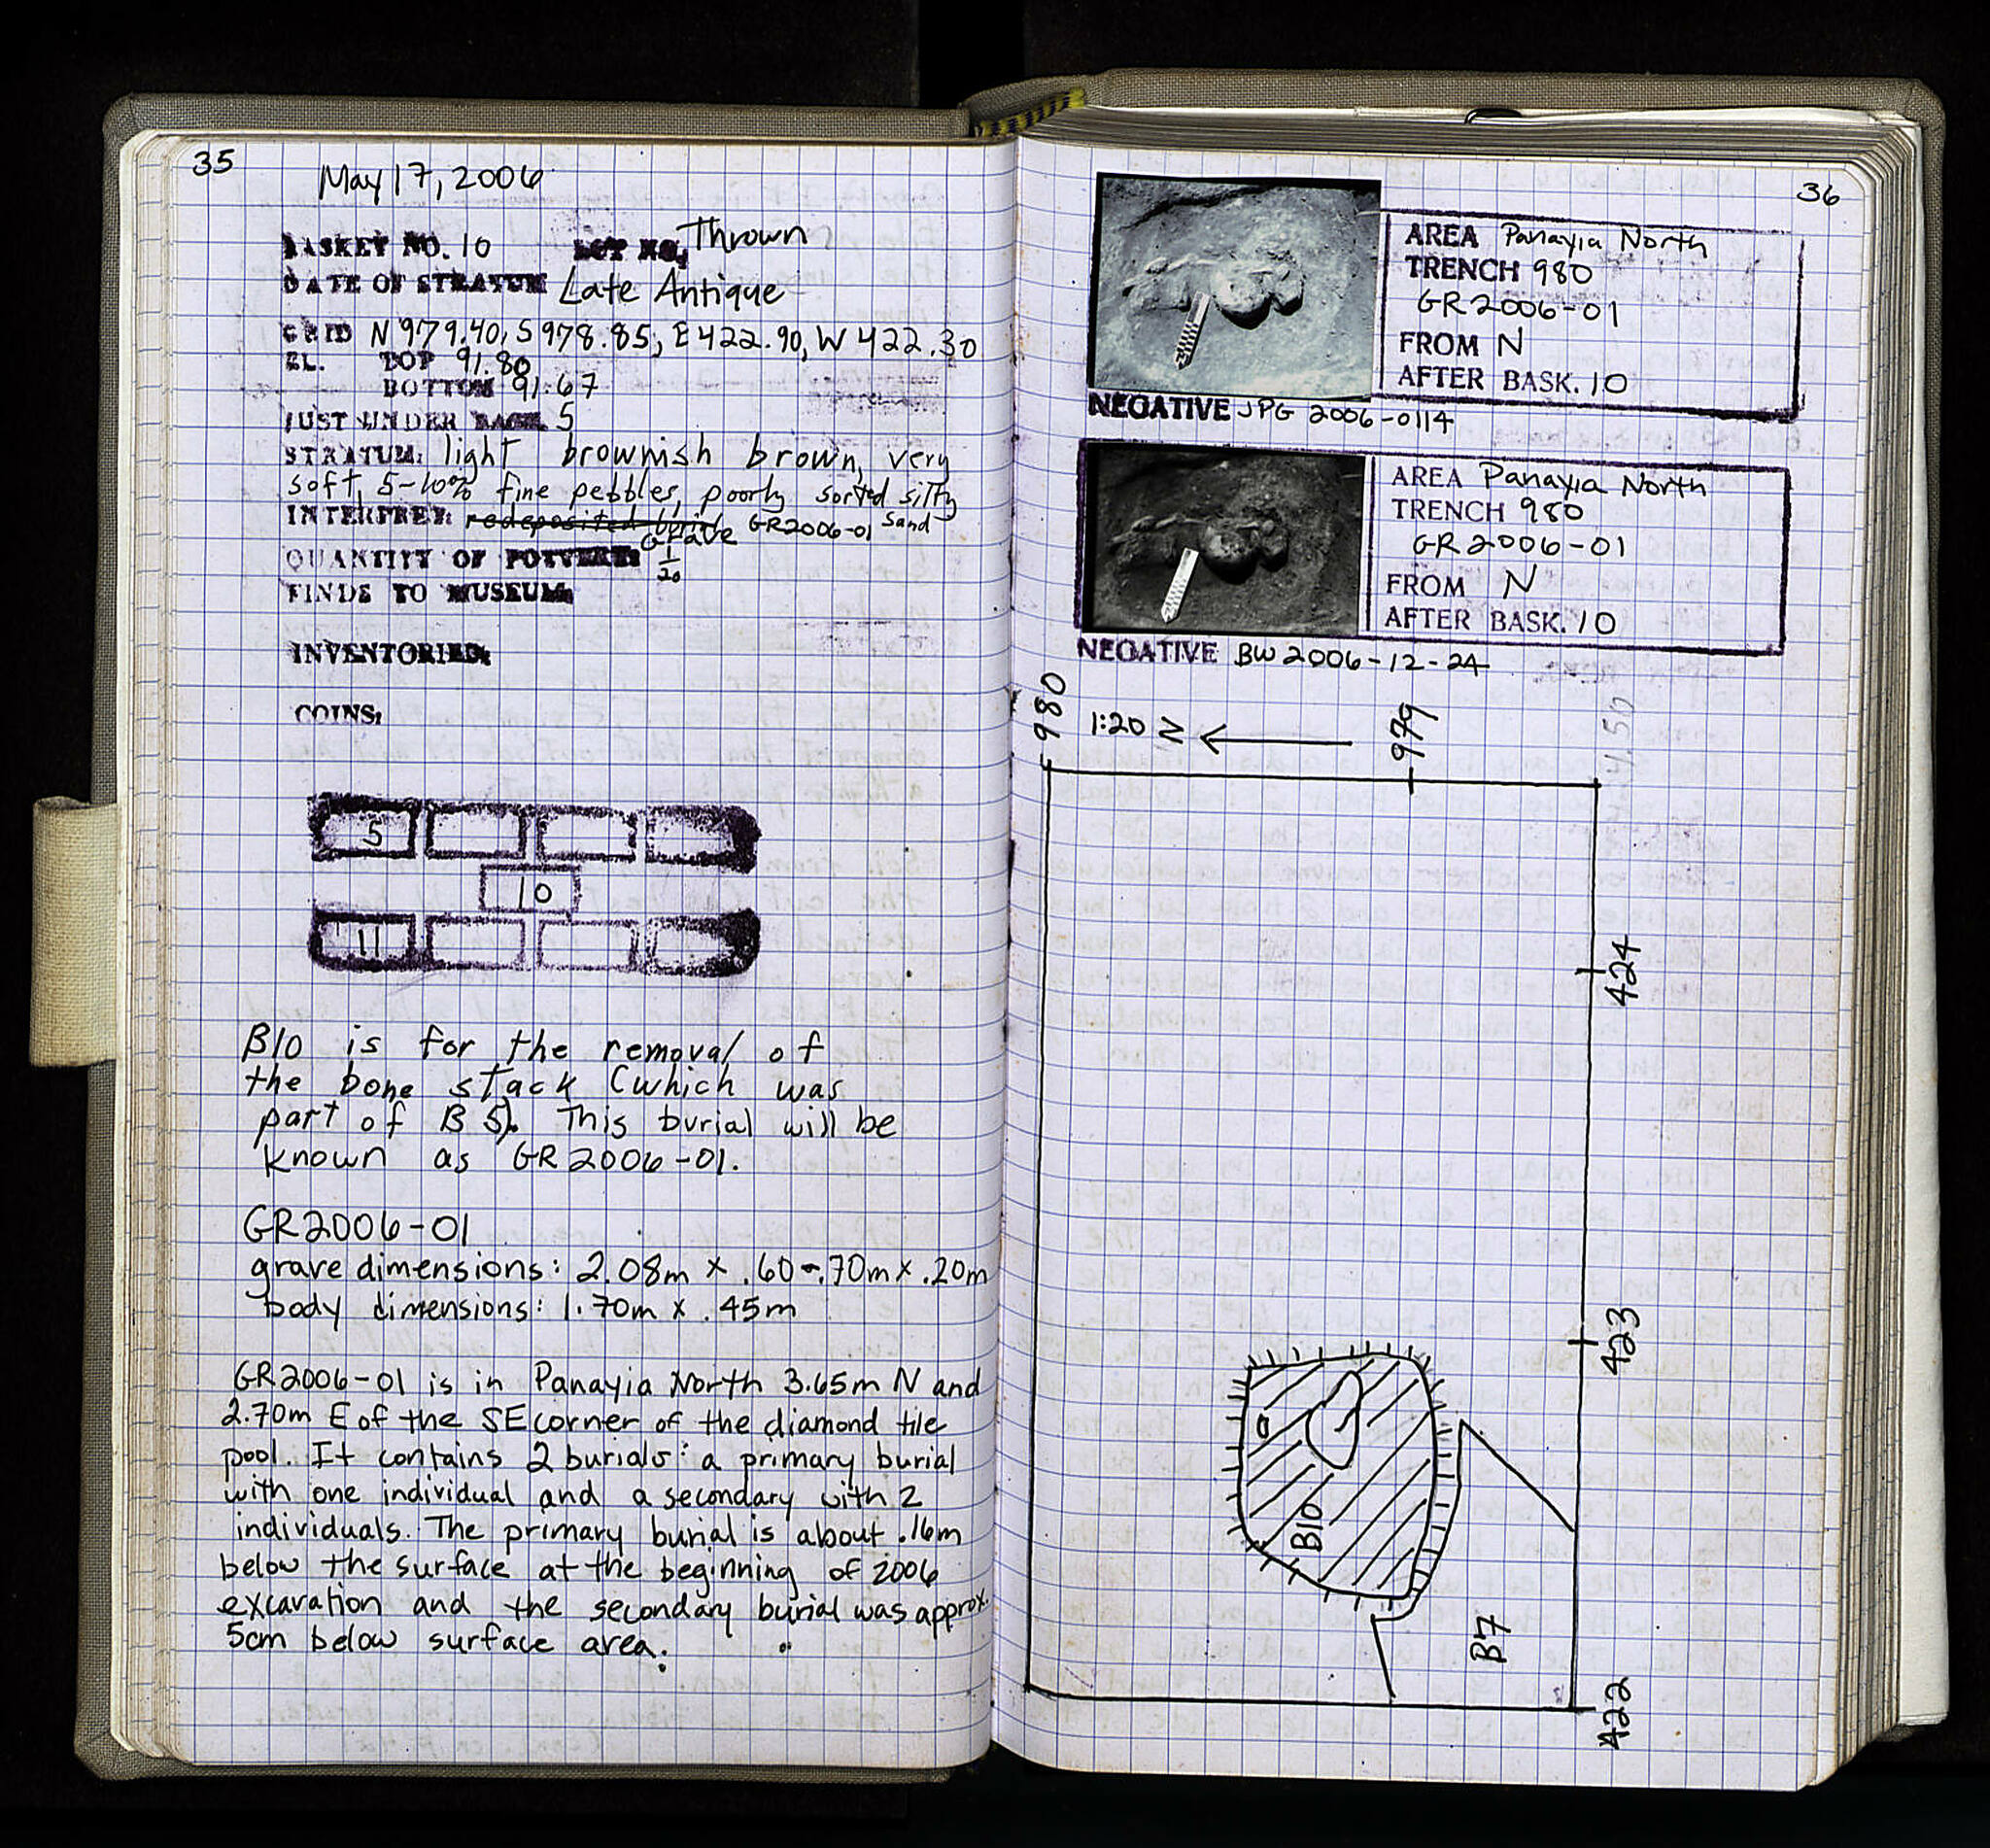 35
May 17, 2006
BASKET NO. 10 LOT NO. Thrown
DATE OF STRATUM Late Antique
GRID N 979.40, S 978.85, E 422.90, W 422.30
EL. TOP 91.80
BOTTOM 91.67
JUST UNDER BASK. 5
STRATUM: light brownish brown, very
soft, 5-10% fine pebbles, poorly sorted silty
sand
INTERPRET: redeposited burial GR2006-01
Grave
QUANTITY OF POTTERY: 1/20
FINDS TO MUSEUM:
INVENTORIED:
COINS:
5
10
11
B10 is for the removal of
the bone stack (which was
part of B 5). This burial will be
known as GR 2006-01.
GR2006-01
grave dimensions: 2.08m x .60-.70m x .20m
body dimensions: 1.70m x .45m
GR2006-01 is in Panayia North 3.65m N and
2.70m E of the SE corner of the diamond tile
pool. It contains 2 burials: a primary burial
with one individual and a secondary with 2
individuals. The primary burial is about .16m
below the surface at the beginning of 2006
excavation and the secondary burial was approx.
5cm below surface area.
36
AREA Panayia North
TRENCH 980
GR2006-01
FROM N
AFTER BASK. 10
NEGATIVE JPG 2006-0114
AREA Panayia North
TRENCH 980
GR2006-01
FROM N
AFTER BASK. 10
NEGATIVE BW 2006-12-24
980
1:20 N
979
424
423
B10
B7
422